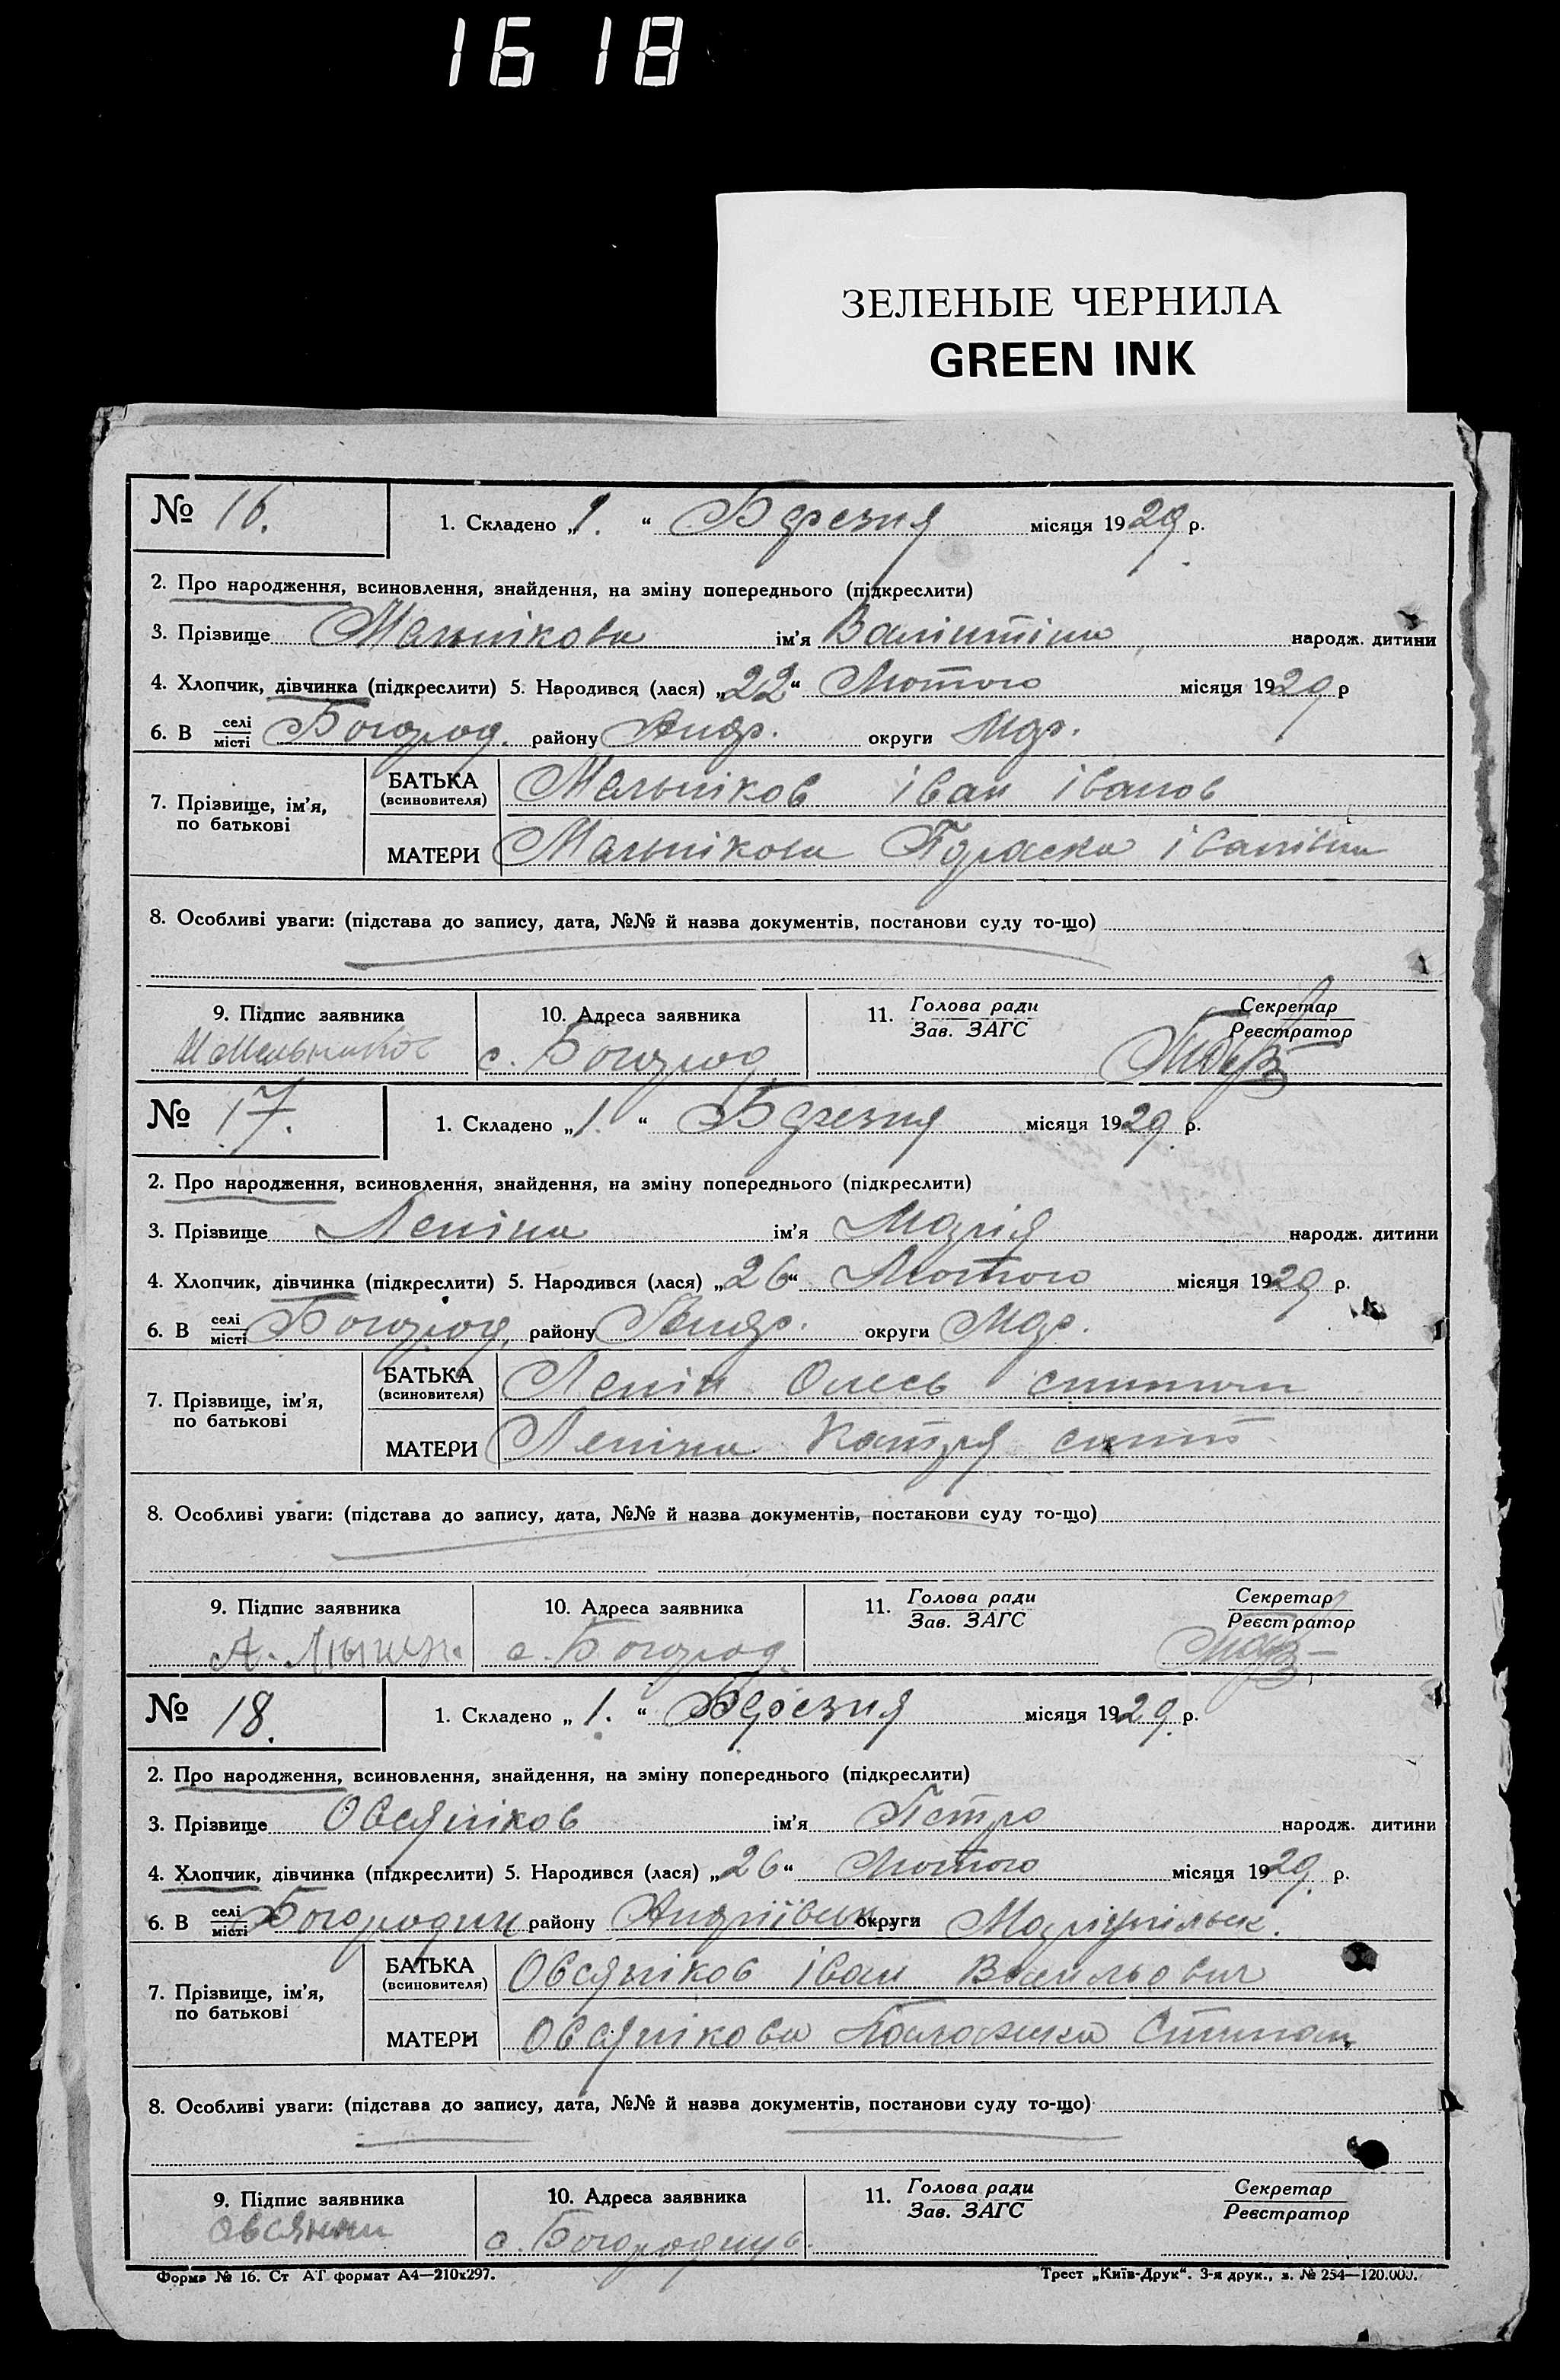 1618
ЗЕЛЕНЫЕ ЧЕРНИЛА
GREEN INK
№ 16. 1. Складено „1.“ Березня місяця 1929 р.
2. Про народження, всиновлення, знайдення, на зміну попереднього (підкреслити)
3. Прізвище Мельнікова ім'я Валінтіна народж. дитини
4. Хлопчик, дівчинка (підкреслити) 5. Народився (лася) „22“ Лютого місяця 1929 р
6. В селі місті Богород. району Андр. округи Мар.
7. Прізвище, ім'я, по батькові
БАТЬКА (всиновителя) Мельніков іван іванов
МАТЕРИ Мельнікова Параска іванівна
8. Особливі уваги: (підстава до запису, дата, №№ й назва документів, постанови суду то-що)
9. Підпис заявника 10. Адреса заявника 11. Голова ради Зав. ЗАГС Секретар Реєстратор
И Мельников с. Богород
№ 17. 1. Складено „1.“ Березня місяця 1929 р.
2. Про народження, всиновлення, знайдення, на зміну попереднього (підкреслити)
3. Прізвище Леніна ім'я Марія народж. дитини
4. Хлопчик, дівчинка (підкреслити) 5. Народився (лася) „26“ Лютого місяця 1929 р.
6. В селі місті Богород. району Андр. округи Мар.
7. Прізвище, ім'я, по батькові
БАТЬКА (всиновителя) Ленін Олесь
МАТЕРИ Леніна Катря
8. Особливі уваги: (підстава до запису, дата, №№ й назва документів, постанови суду то-що)
9. Підпис заявника 10. Адреса заявника 11. Голова ради Зав. ЗАГС Секретар Реєстратор
с. Богород.
№ 18. 1. Складено „1.“ Березня місяця 1929. р.
2. Про народження, всиновлення, знайдення, на зміну попереднього (підкреслити)
3. Прізвище Овсяніков ім'я Петро народж. дитини
4. Хлопчик, дівчинка (підкреслити) 5. Народився (лася) „26“ Лютого місяця 1929. р.
6. В селі місті району Андріївськ. округи Маріупільськ.
7. Прізвище, ім'я, по батькові
БАТЬКА (всиновителя) Овсяніков іван Васильович
МАТЕРИ Овсянікова Палажка Степан.
8. Особливі уваги: (підстава до запису, дата, №№ й назва документів, постанови суду то-що)
9. Підпис заявника 10. Адреса заявника 11. Голова ради Зав. ЗАГС Секретар Реєстратор
Форма № 16. Ст АТ формат А4—210x297. Трест „Київ-Друк“. 3-я друк., з. № 254—120.000.